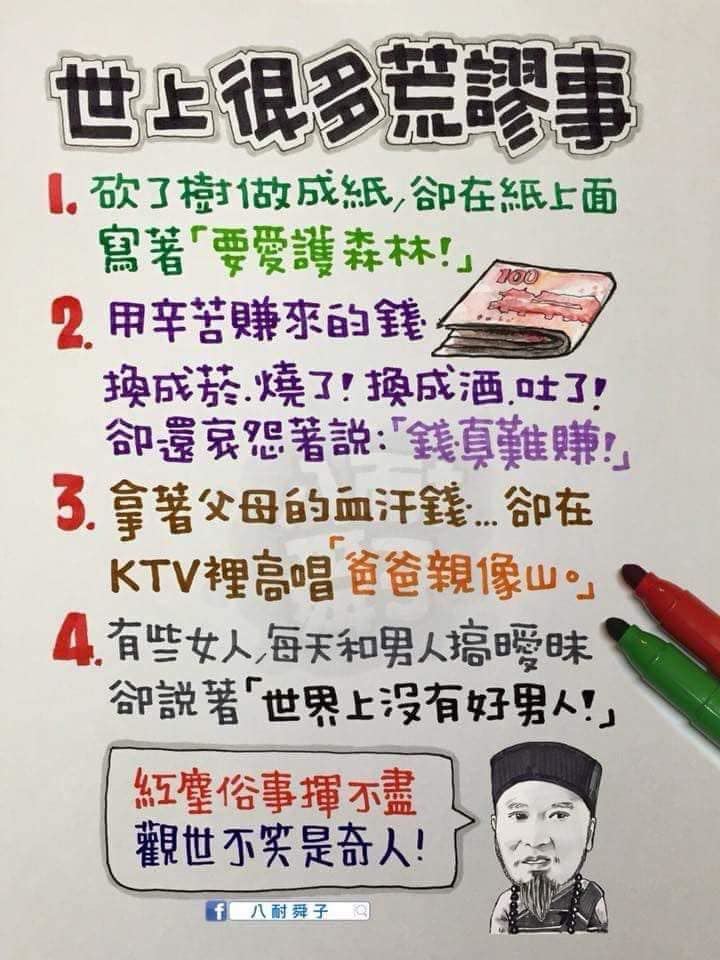 世上很多荒謬事
1. 砍了樹做成紙,卻在紙上面
寫著「要愛護森林!」
100
2. 用辛苦賺來的錢
換成菸.燒了!換成酒.吐了!
卻還哀怨著說:「錢真難賺!」
3. 拿著父母的血汗錢...卻在
KTV裡高唱「爸爸親像山。」
4. 有些女人,每天和男人搞曖昧
卻說著「世界上沒有好男人!」
紅塵俗事揮不盡
觀世不笑是奇人!
f 八耐舜子